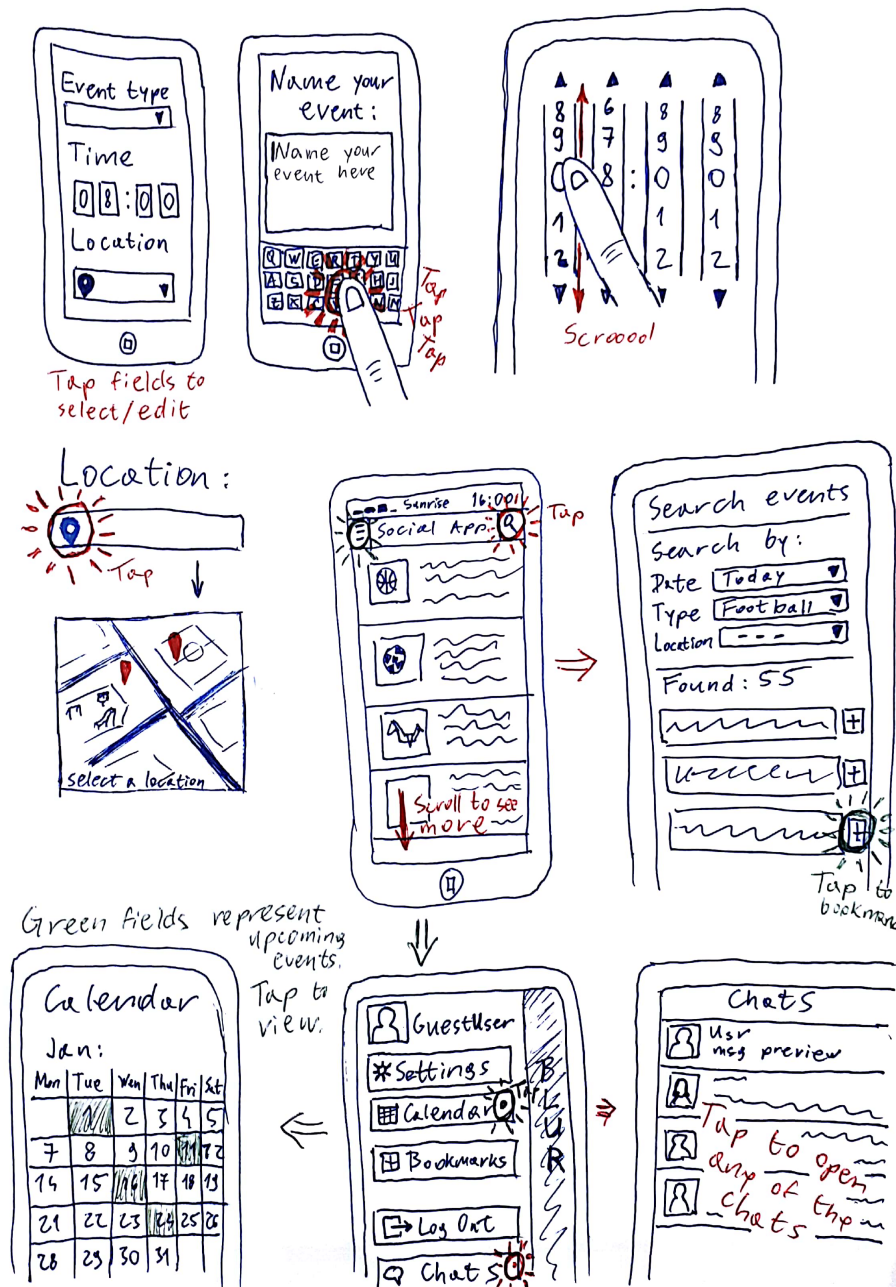 Event type
Time
08:00
Location
Tap fields to
select/edit
Name your
event:
Name your
event here
Q W E R T Y U
A S D H J
Z X N M
Tap
Tap
Tap
8 6 8 8
9 7 9 9
0 8 : 0 0
1 1 1
2 2 2
Scroool
Location:
Tap
select a location
Sunrise 16:00
Social App
Tap
Scroll to see
more
Search events
Search by:
Date Today
Type Football
Location ---
Found: 55
Tap to
bookmark
Green fields represent
upcoming
events.
Tap to
view.
Calendar
Jan:
Mon Tue Wen Thu Fri Sat
1 2 3 4 5
7 8 9 10 11 12
14 15 16 17 18 19
21 22 23 24 25 26
28 29 30 31
GuestUser
Settings
Calendar
Tap
Bookmarks
Log Out
Chats
BLUR
Chats
Usr
msg preview
Tap to open
any of the
chats